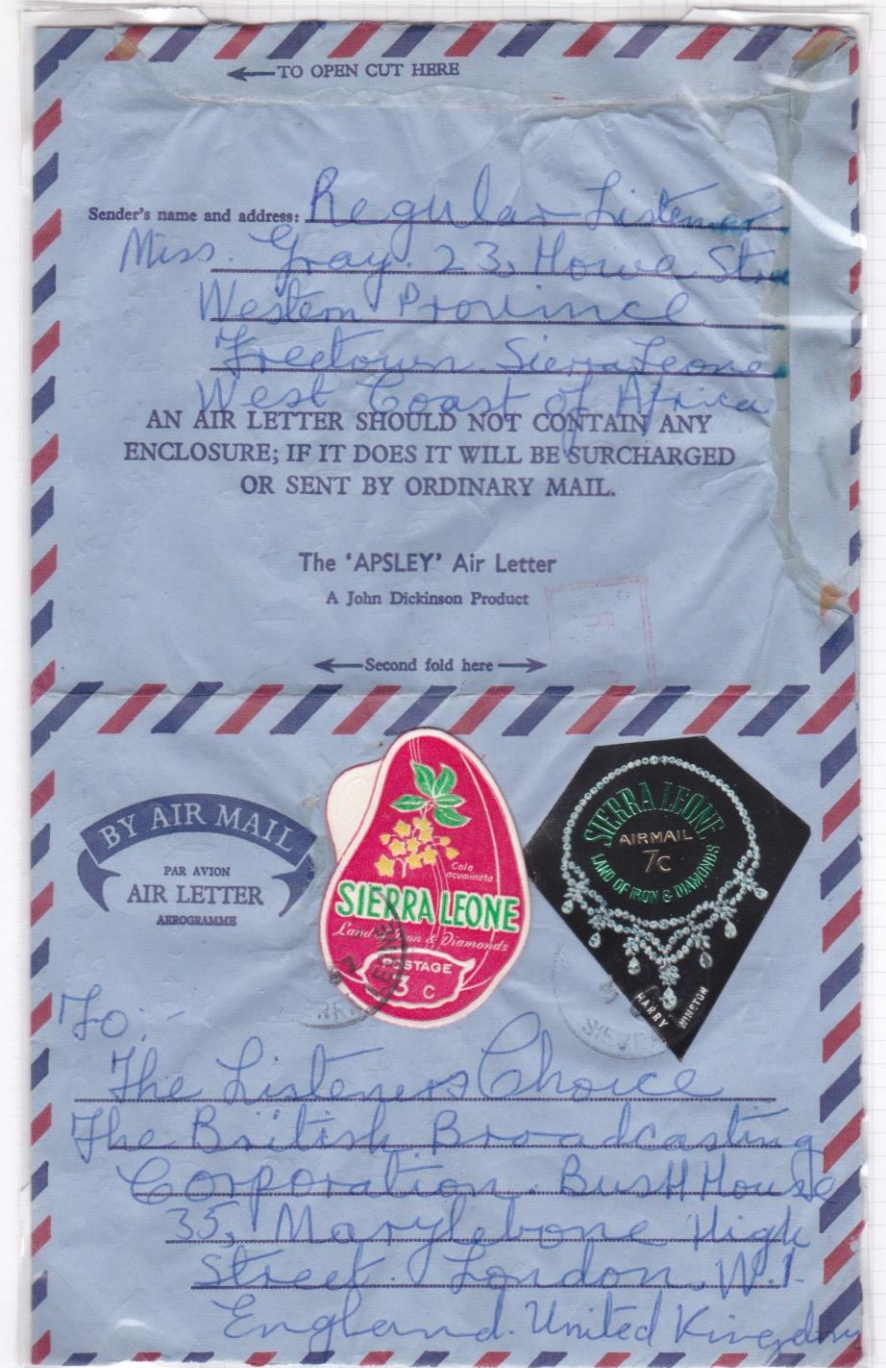 TO OPEN CUT HERE
Sender's name and address: Regular Listener
Miss. Gray. 23, Howa Stre
Western Province
Freetown. Sierra Leone
West Coast of Africa
AN AIR LETTER SHOULD NOT CONTAIN ANY
ENCLOSURE; IF IT DOES IT WILL BE SURCHARGED
OR SENT BY ORDINARY MAIL.
The 'APSLEY' Air Letter
A John Dickinson Product
Second fold here
BY AIR MAIL
PAR AVION
AIR LETTER
AEROGRAMME
Cola
acuminata
SIERRA LEONE
Land of Iron & Diamonds
POSTAGE
3 C
SIERRA LEONE
AIRMAIL
7c
LAND OF IRON & DIAMONDS
HARRY WINSTON
To:-
The Listeners Choice
The British Broadcasting
Corporation. BusH House
35, Marylebone High
Street. London. W.1.
England. United Kingdom